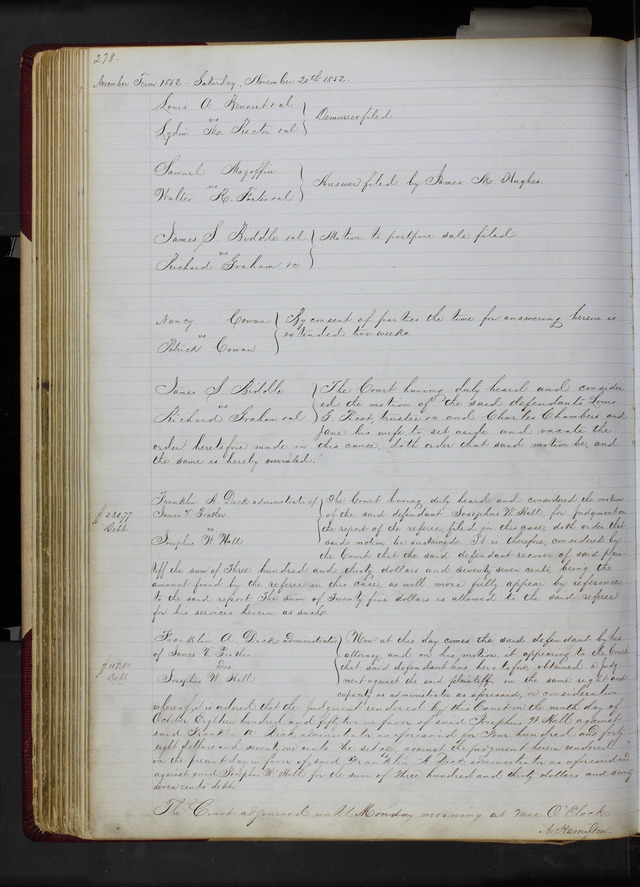 278.
November Term 1852 - Saturday, November 20th 1852.
Louis A Benoist & al
vs
Lydia M. Rector & al
Demurrer filed
Samuel Magoffin
vs
Walter R. Foster & al
Answer filed by James M. Hughes.
James S. Biddle & al
vs
Richard Graham &c
Motion to postpone sale filed
Nancy Cowan
vs
Patrick Cowan
By consent of parties the time for answering herein is
extended two weeks.
James S. Biddle
vs
Richard Graham & al
The Court having duly heard and consider
ed the motion of the said defendants Louis
G. Picot, trustee &a and Charles Chambers and
Jane his wife to set aside and vacate the
order heretofore made in this cause, doth order that said motion be, and
the same is hereby overruled.
Franklin A. Dick administrator of
James V. Prather
vs
Josephus W. Hall
$330.77
Debt
The Court having duly heard and considered the motion
of the said defendant Josephus W. Hall for judgment on
the report of the referee filed in this case, doth order that
said motion be sustained. It is, therefore, considered by
the Court that the said defendant recover of said plain-
tiff the sum of Three hundred and thirty dollars and seventy seven cents, being the
amount found by the referee in this case, as will more fully appear by reference
to the said report. The sum of Twenty five dollars is allowed to the said referee
for his services herein as such.
Franklin A. Dick administrator
of James V. Prather
vs
Josephus W. Hall
Debt
Now at this day comes the said defendant by his
attorney, and on his motion, it appearing to the Court
that said defendant has heretofore obtained a judg-
ment against the said plaintiff, in the same right and
capacity as administrator as aforesaid, in consideration
whereof, it is ordered that the judgment rendered by this Court on the ninth day of
October Eighteen hundred and fifty two in favor of said Josephus W. Hall against
said Franklin A. Dick administrator as aforesaid for Four hundred and forty
eight dollars and seventy one cents be set off against the judgment herein rendered
on the present day in favor of said Franklin A. Dick administrator as aforesaid and
against said Josephus W. Hall for the sum of Three hundred and thirty dollars and seventy
seven cents debt.
The Court adjourned until Monday morning at nine O'Clock
A. Hamilton.